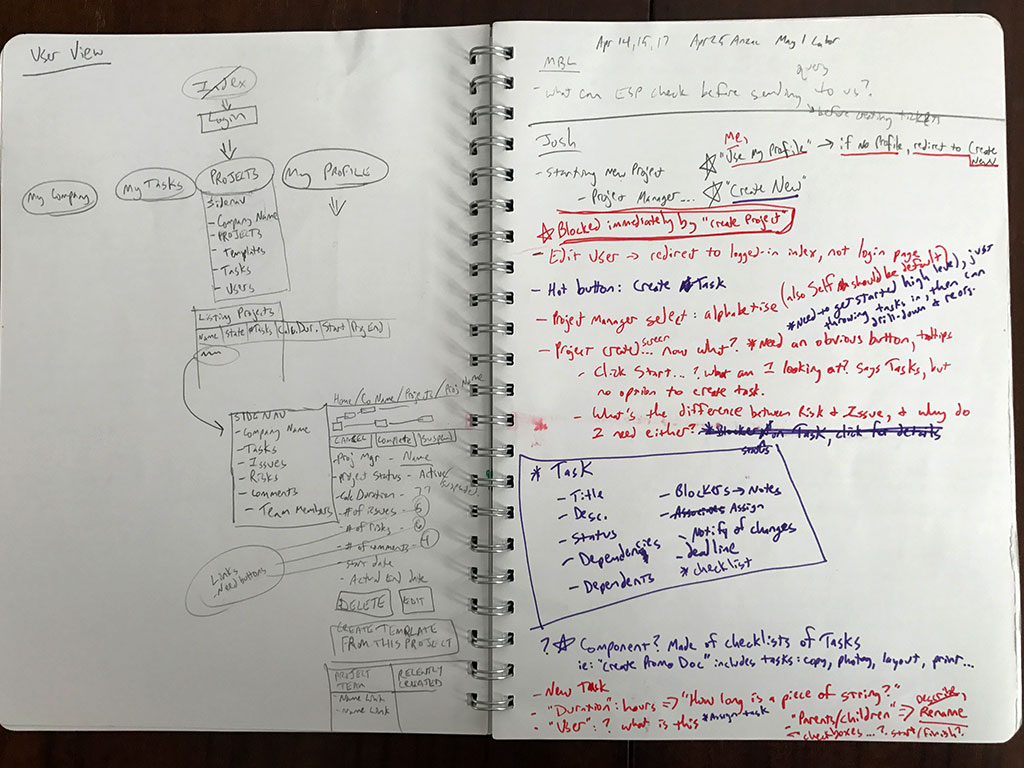 User View
Index
Login
My Company
My Tasks
PROJECTS
My PROFILE
Sidenav
- Company Name
- PROJECTS
- Templates
- Tasks
- Users
Listing Projects
Name | State | #Tasks | Calc. Dur. | Start | Proj End
Home/Co Name/Projects/Proj Name
SIDE NAV
- Company Name
- Tasks
- Issues
- Risks
- Comments
- Team Members
CANCEL | Complete | Suspend
- Proj Mgr - Name
- Project Status - Active/Suspended.
- Calc Duration - 77
- # of issues - 6
- # of risks - 6
- # of comments - 4
- Start date
- Actual End Date
Links
Need buttons
DELETE EDIT
CREATE TEMPLATE
FROM THIS PROJECT
PROJECT TEAM | RECENTLY CREATED
- Name Link
- Name Link
Apr 14, 15, 17 Apr 25 Anzac May 1 Labor
MBL
query
- what can ESP check before sending to us?
*before creating tickets
Josh
Me,
"Use My Profile" → if no Profile, redirect to Create New
- Starting New Project
- Project Manager... "Create New"
Blocked immediately by "create Project"
- Edit User → redirect to logged-in index, not login page
- Hot button: Create Task
- Project Manager select: alphabetise (also Self should be default)
*Need to get started high level, just
throwing tasks in, then can
drill-down & reorg.
- Project created screen... now what? *Need an obvious button, tooltips
- Click Start...? What am I looking at? Says Tasks, but
no option to create task.
- What's the difference between Risk & Issue, & why do
I need either? *Blocker on Task, click for details
status
* Task
- Title
- Desc.
- Status
- Dependencies
- Dependents
- Blockers → Notes
- Associates Assign
- Notify of changes
- deadline
* checklist
? Component? Made of checklists of Tasks
ie: "Create Promo Doc" includes tasks: copy, photog, layout, print...
- New Task
- "Duration": hours => "How long is a piece of string?"
- "User": ? what is this *Assign task
"Parents/children" => Describe, Rename
checkboxes...? start/finish?